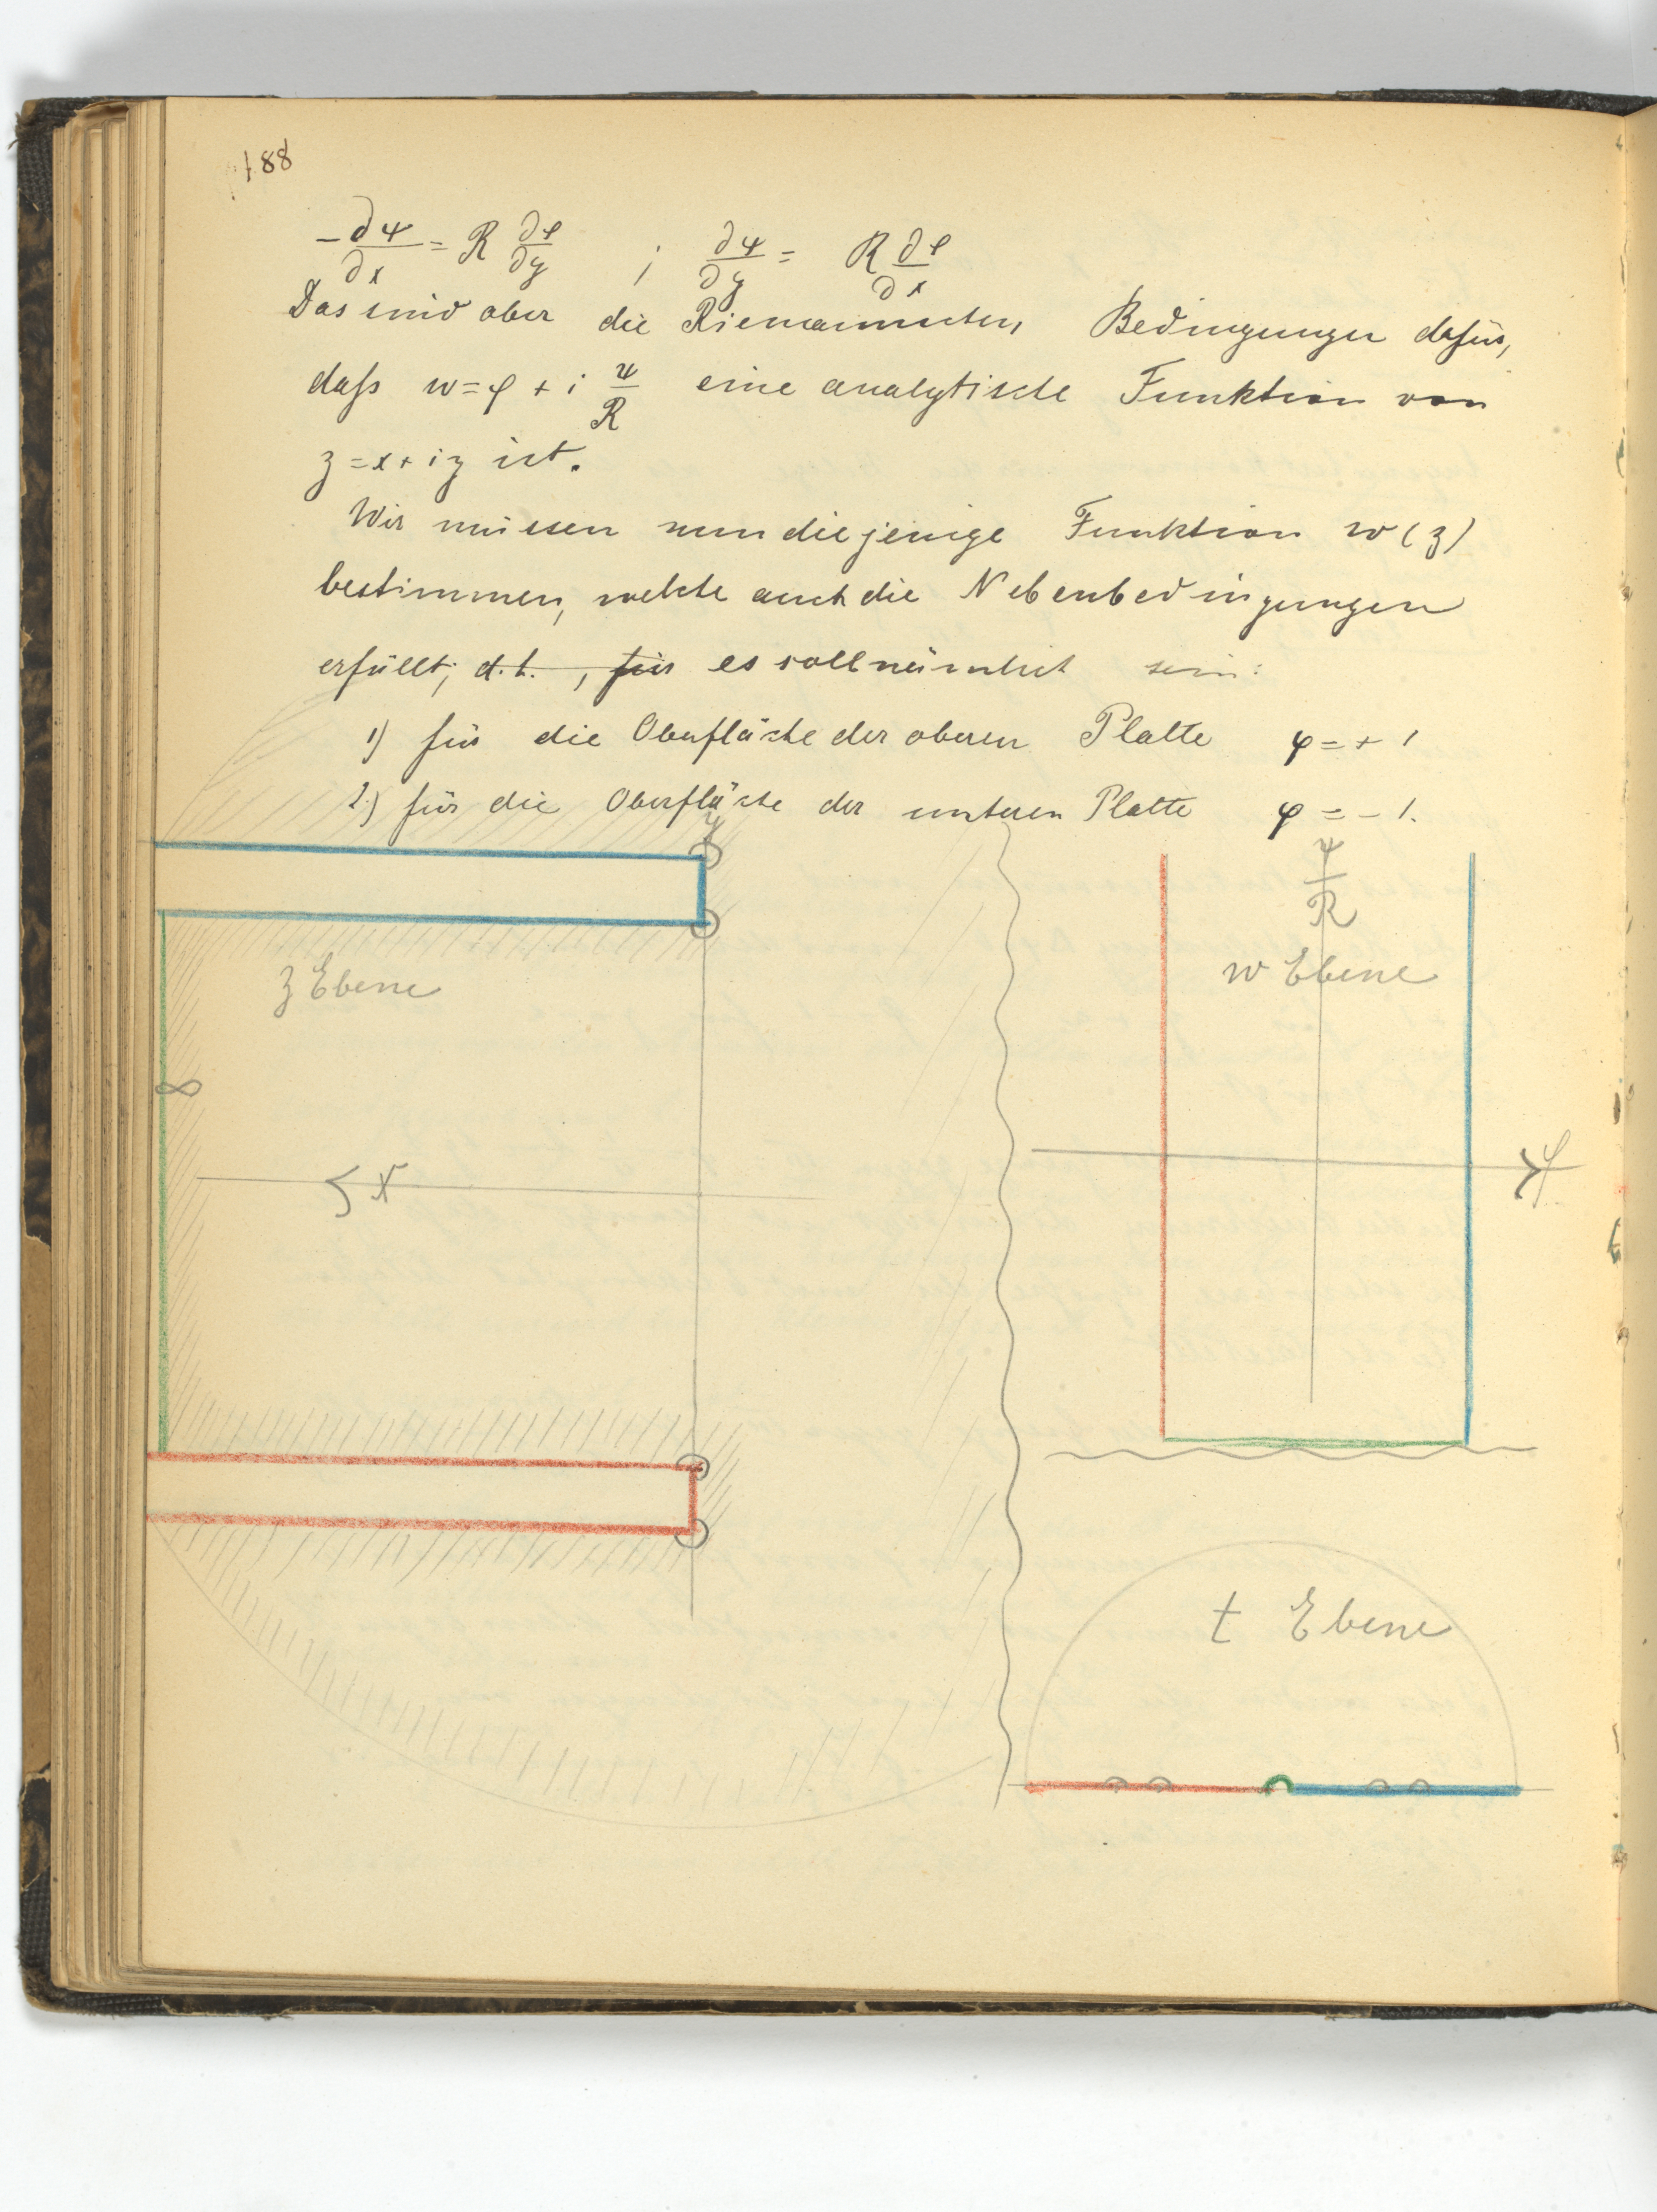 188
-∂ψ/∂x = R ∂φ/∂y ; ∂ψ/∂y = R ∂φ/∂x
Das sind aber die Riemannschen Bedingungen dafür,
daſs w = φ + i ψ/R eine analytische Funktion von
z = x + iy ist.
Wir müssen nun diejenige Funktion w(z)
bestimmen, welche auch die Nebenbedingungen
erfüllt; d.h., für es soll nämlich sein:
1) für die Oberfläche der oberen Platte φ = + 1
2.) für die Oberfläche der unteren Platte φ = - 1.
y
ψ/R
z Ebene
w Ebene
∞
x
φ
t Ebene